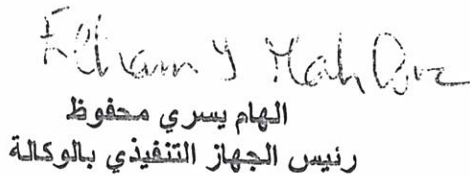 Elham Y Mahfouz
الهام يسري محفوظ
رئيس الجهاز التنفيذي بالوكالة